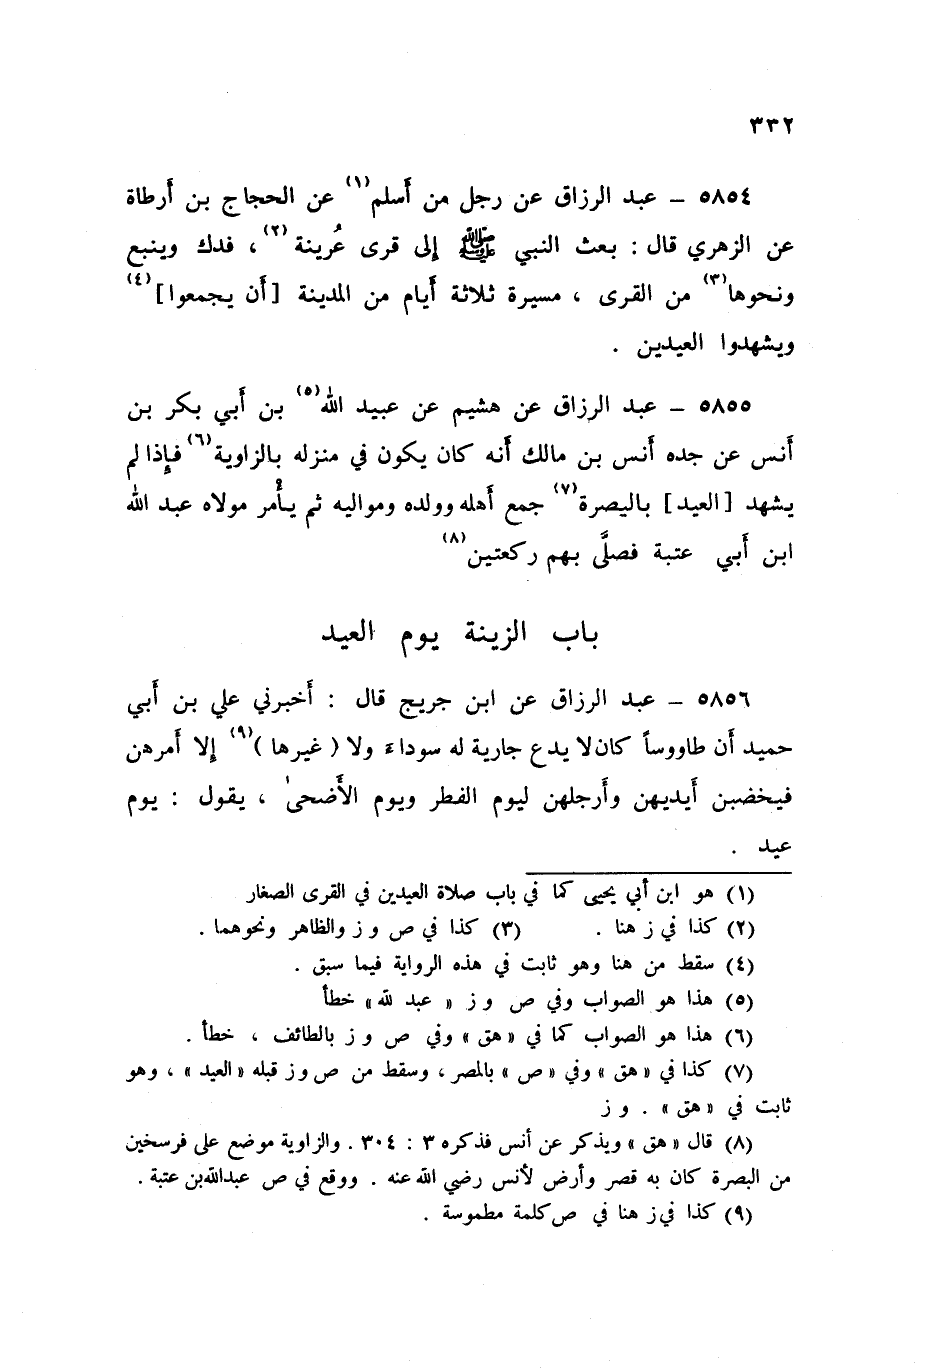 ٣٣٢
٥٨٥٤ – عبد الرزاق عن رجل من أَسلم(١) عن الحجاج بن أَرطاة
عن الزهري قال : بعث النبي ﷺ إلى قرى عُرينة(٢) ، فدك وينبع
ونحوها(٣) من القرى ، مسيرة ثلاثة أَيام من المدينة [أَن يجمعوا](٤)
ويشهدوا العيدين .
٥٨٥٥ – عبد الرزاق عن هشيم عن عبيد الله(٥) بن أَبي بكر بن
أَنس عن جده أَنس بن مالك أَنه كان يكون في منزله بالزاوية(٦) فإِذا لم
يشهد [العيد] بالبصرة(٧) جمع أَهله وولده ومواليه ثم يأْمر مولاه عبد الله
ابن أَبي عتبة فصلَّى بهم ركعتين(٨)
باب الزينة يوم العيد
٥٨٥٦ – عبد الرزاق عن ابن جريج قال : أَخبرني علي بن أَبي
حميد أَن طاووساً كان لا يدع جارية له سوداءَ ولا (غيرها)(٩) إِلا أَمرهن
فيخضبن أَيديهن وأَرجلهن ليوم الفطر ويوم الأَضحى ، يقول : يوم
عيد .
(١) هو ابن أبي يحيى كما في باب صلاة العيدين في القرى الصغار
(٢) كذا في ز هنا . (٣) كذا في ص و ز والظاهر ونحوهما .
(٤) سقط من هنا وهو ثابت في هذه الرواية فيما سبق .
(٥) هذا هو الصواب وفي ص و ز « عبد لله » خطأ
(٦) هذا هو الصواب كما في « هق » وفي ص و ز بالطائف ، خطأ .
(٧) كذا في « هق » وفي « ص » بالمصر ، وسقط من ص و ز قبله « العيد » ، وهو
ثابت في « هق » . و ز
(٨) قال « هق » ويذكر عن أنس فذكره ٣ : ٣٠٤ . والزاوية موضع على فرسخين
من البصرة كان به قصر وأرض لأنس رضي الله عنه . ووقع في ص عبدالله بن عتبة .
(٩) كذا في ز هنا في ص كلمة مطموسة .